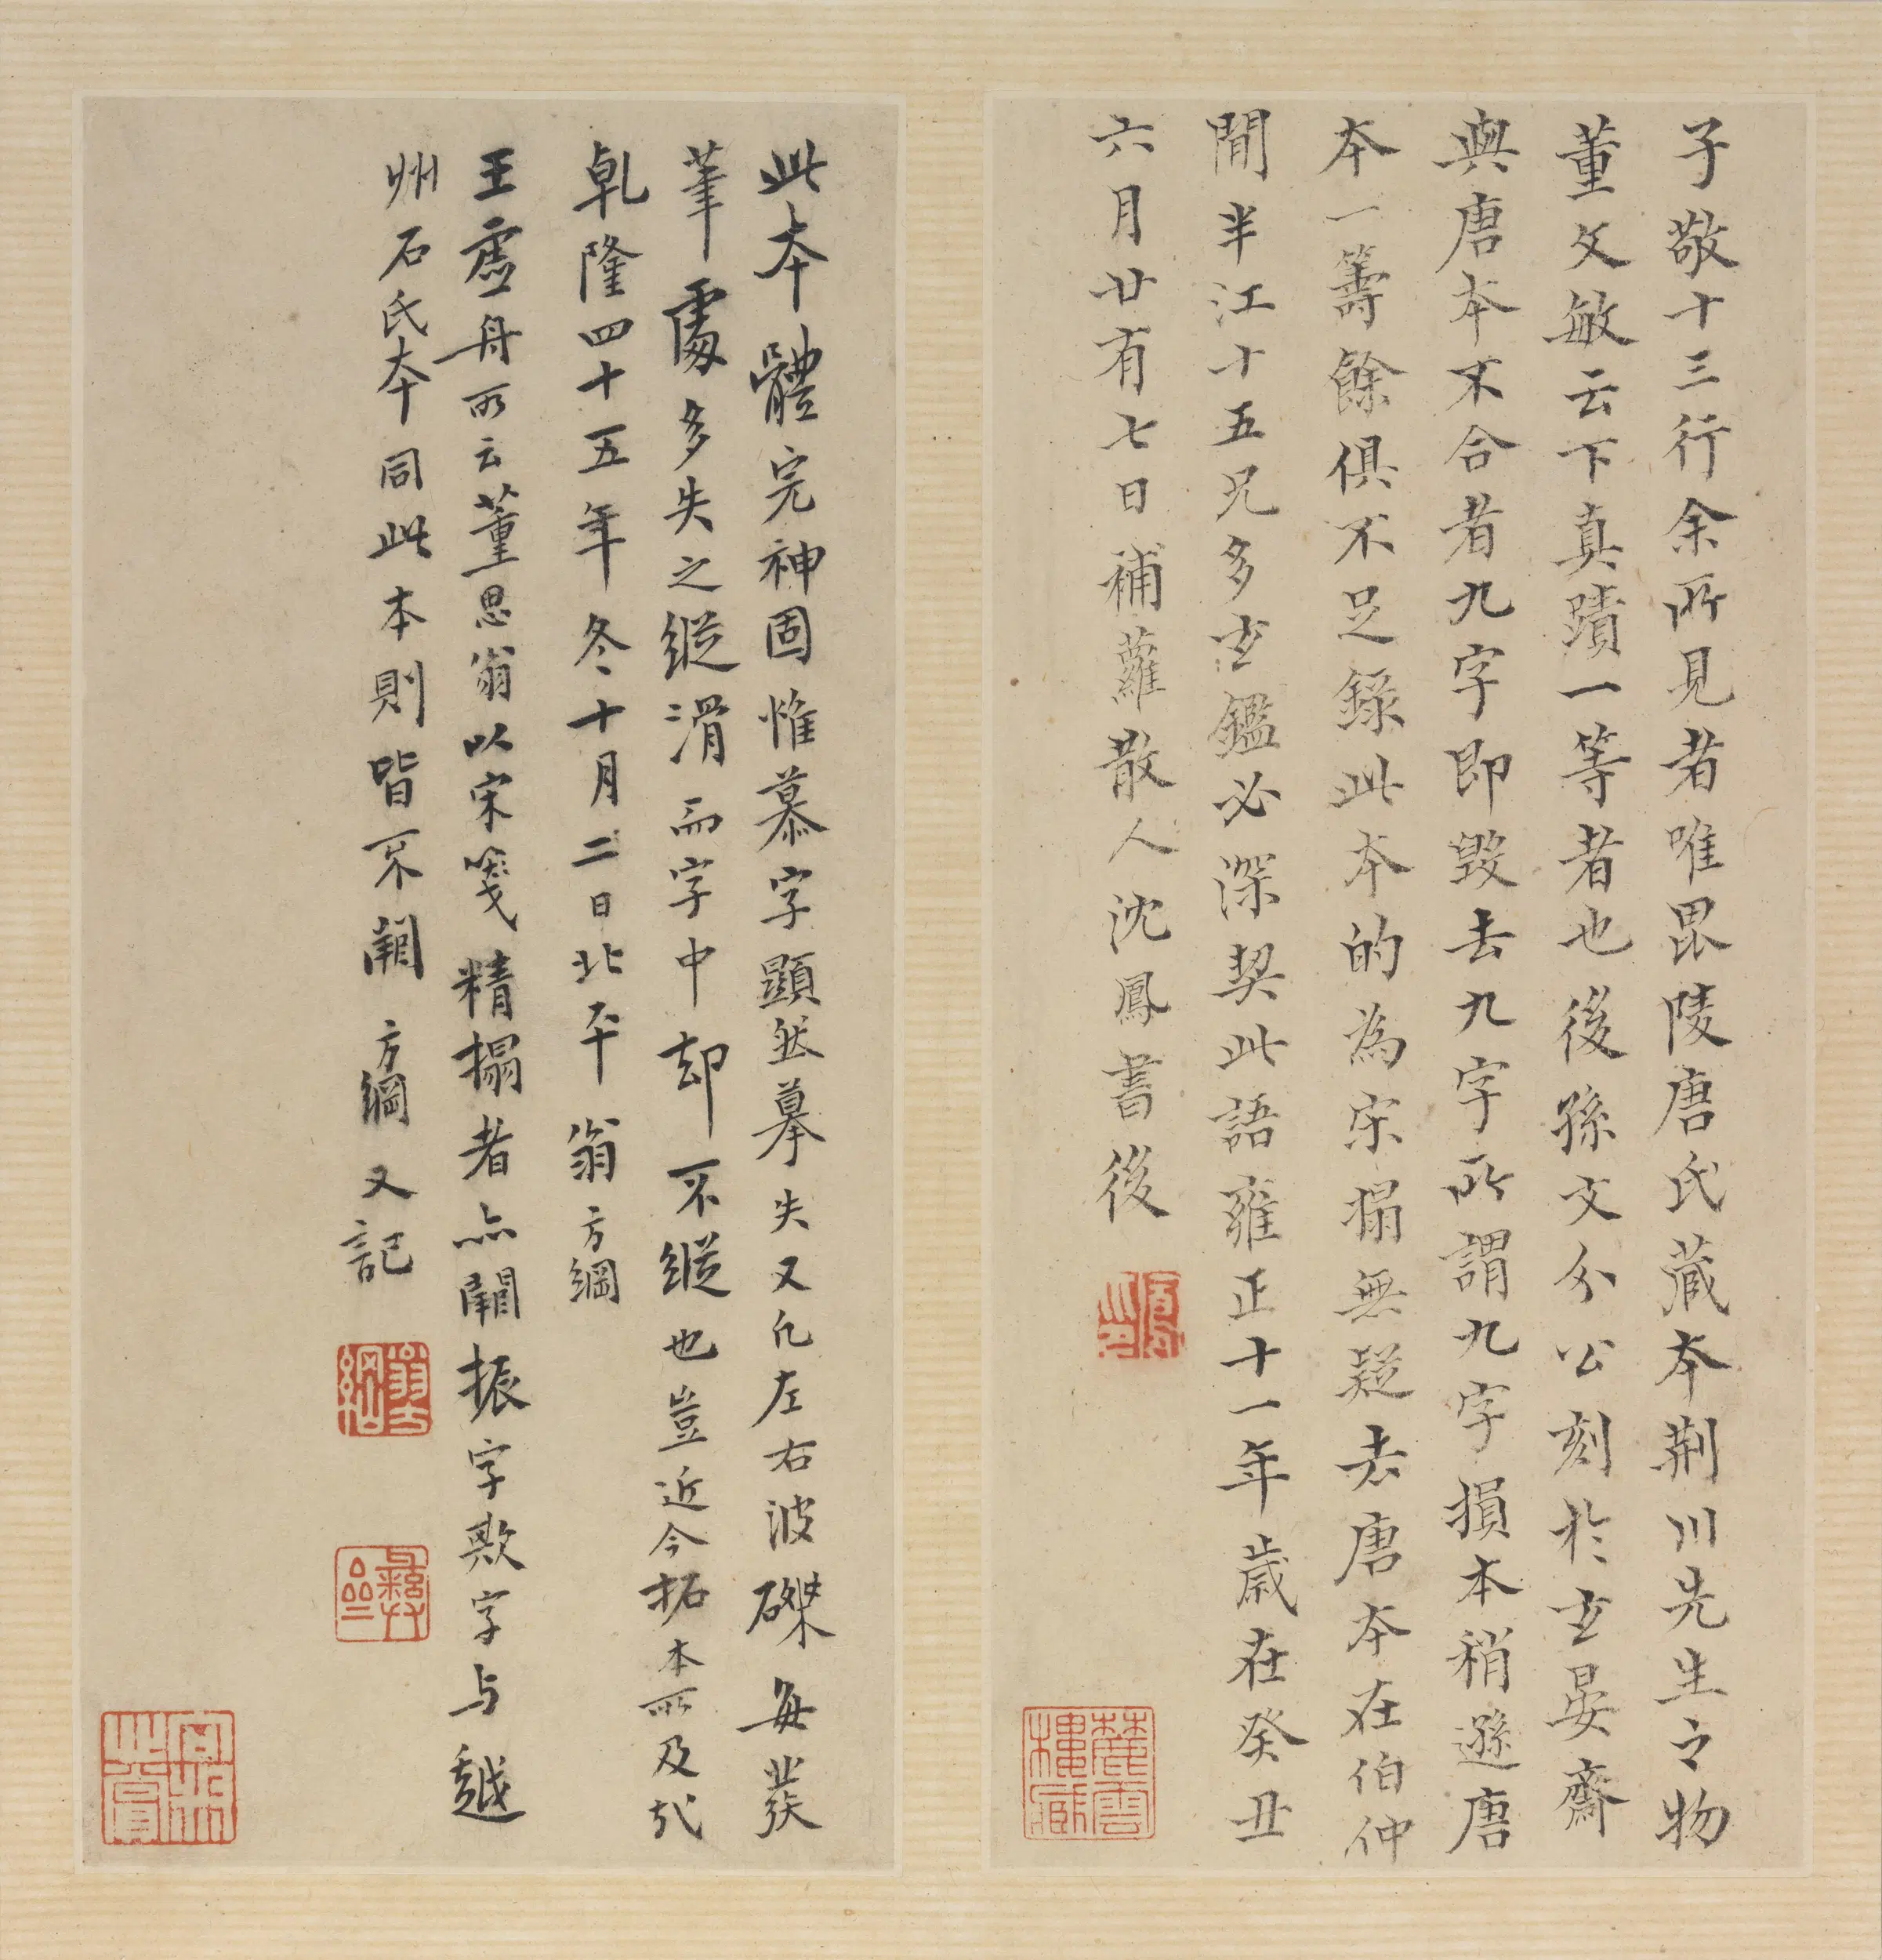 子敬十三行余所見者唯毘陵唐氏藏本荆川先生之物
董文敏云下真蹟一等者也後孫文介公刻於玄晏齋
與唐本不合者九字即毀去九字所謂九字損本稍遜唐
本一籌餘俱不足錄此本的為宋搨無疑去唐本在伯仲
間半江十五兄多玄鑑必深契此語雍正十一年歲在癸丑
六月廿有七日補蘿散人沈鳳書後
鳳印
麓雲樓藏
此本體完神固惟慕字顯然摹失又凡左右波磔每發
筆處多失之縱滑而字中却不縱也豈近今拓本所及哉
乹隆四十五年冬十月二日北平翁方綱
王虛舟所云董思翁以宋箋精搨者亦闕振字歎字与越
州石氏本同此本則皆不闕 方綱又記
翁方綱
彝